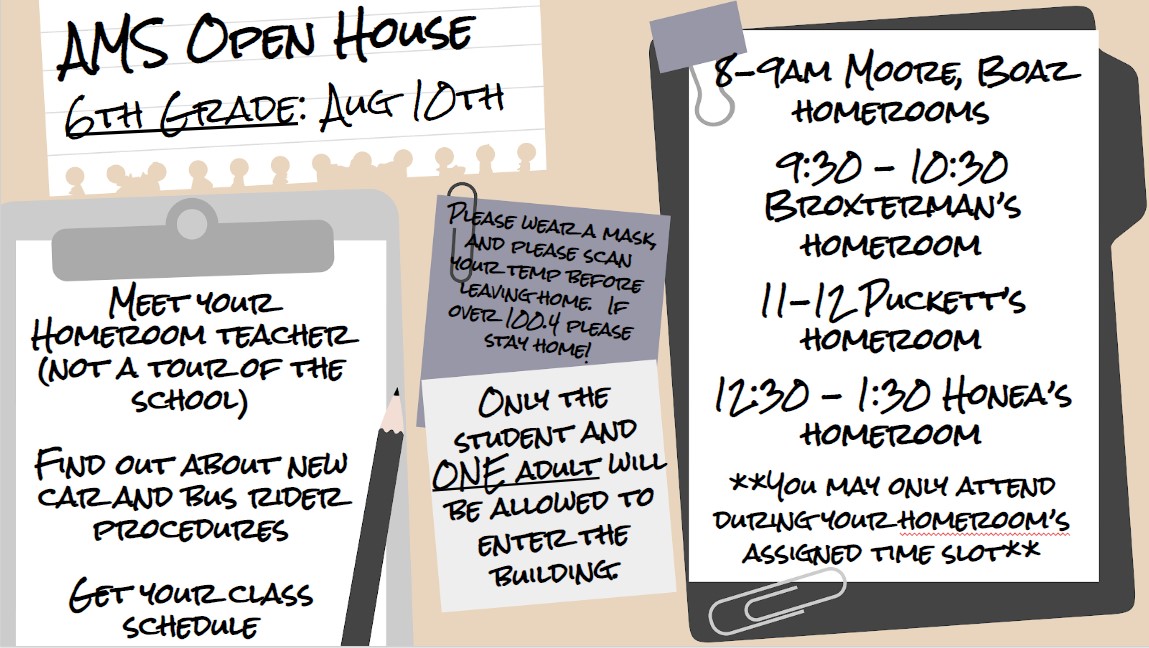 AMS Open House
6th Grade: Aug 10th
Meet your
Homeroom teacher
(not a tour of the
school)
Find out about new
car and bus rider
procedures
Get your class
schedule
Please wear a mask,
and please scan
your temp before
leaving home. If
over 100.4 please
stay home!
Only the
student and
ONE adult will
be allowed to
enter the
building.
8-9am Moore, Boaz
homerooms
9:30 - 10:30
Broxterman's
homeroom
11-12 Puckett's
homeroom
12:30 - 1:30 Honea's
homeroom
**You may only attend
during your homeroom's
assigned time slot**